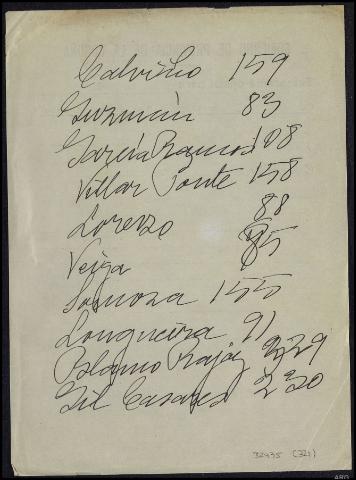 Calviño 159
Guzmán 83
García Ramos 108
Villar Ponte 158
Lorenzo 88
Veiga 95
Somoza 155
Longueira 91
Blanco Rajoy 229
Gil Casares 230
32435 (321)